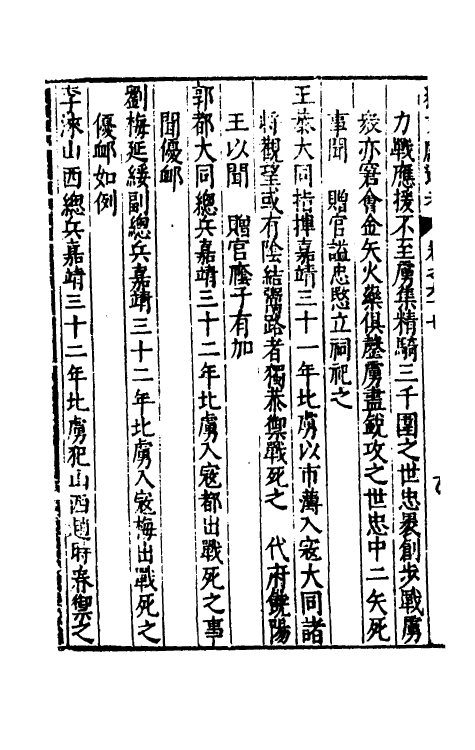 力戰應援不至虜集精騎三千圍之世忠裹創步戰虜
衆亦窘會金矢火藥俱罄虜盡銳攻之世忠中二矢死
事聞 贈官謚忠愍立祠祀之
王恭大同指揮嘉靖三十一年北虜以市溥入寇大同諸
將觀望或有陰結賂者獨恭禦戰死之 代府饒陽
王以聞 贈官廕子有加
郭都大同總兵嘉靖三十二年北虜入寇都出戰死之事
聞優䘏
劉梅延綏副總兵嘉靖三十二年北虜入寇梅出戰死之
優䘏如例
李淶山西總兵嘉靖三十二年北虜犯山西趙時春禦之